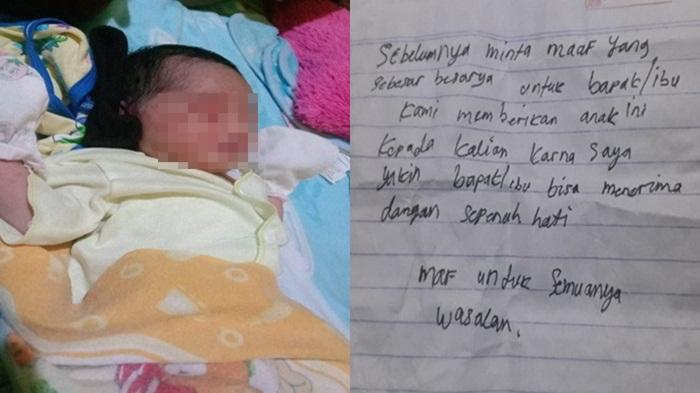 Sebelumnya minta maaf yang
sebesar besarya untuk bapak/ibu
kami memberikan anak ini
kepada kalian karna saya
yakin bapak/ibu bisa menerima
dangan sepenah hati
maf untuk semuanya
wasalan.